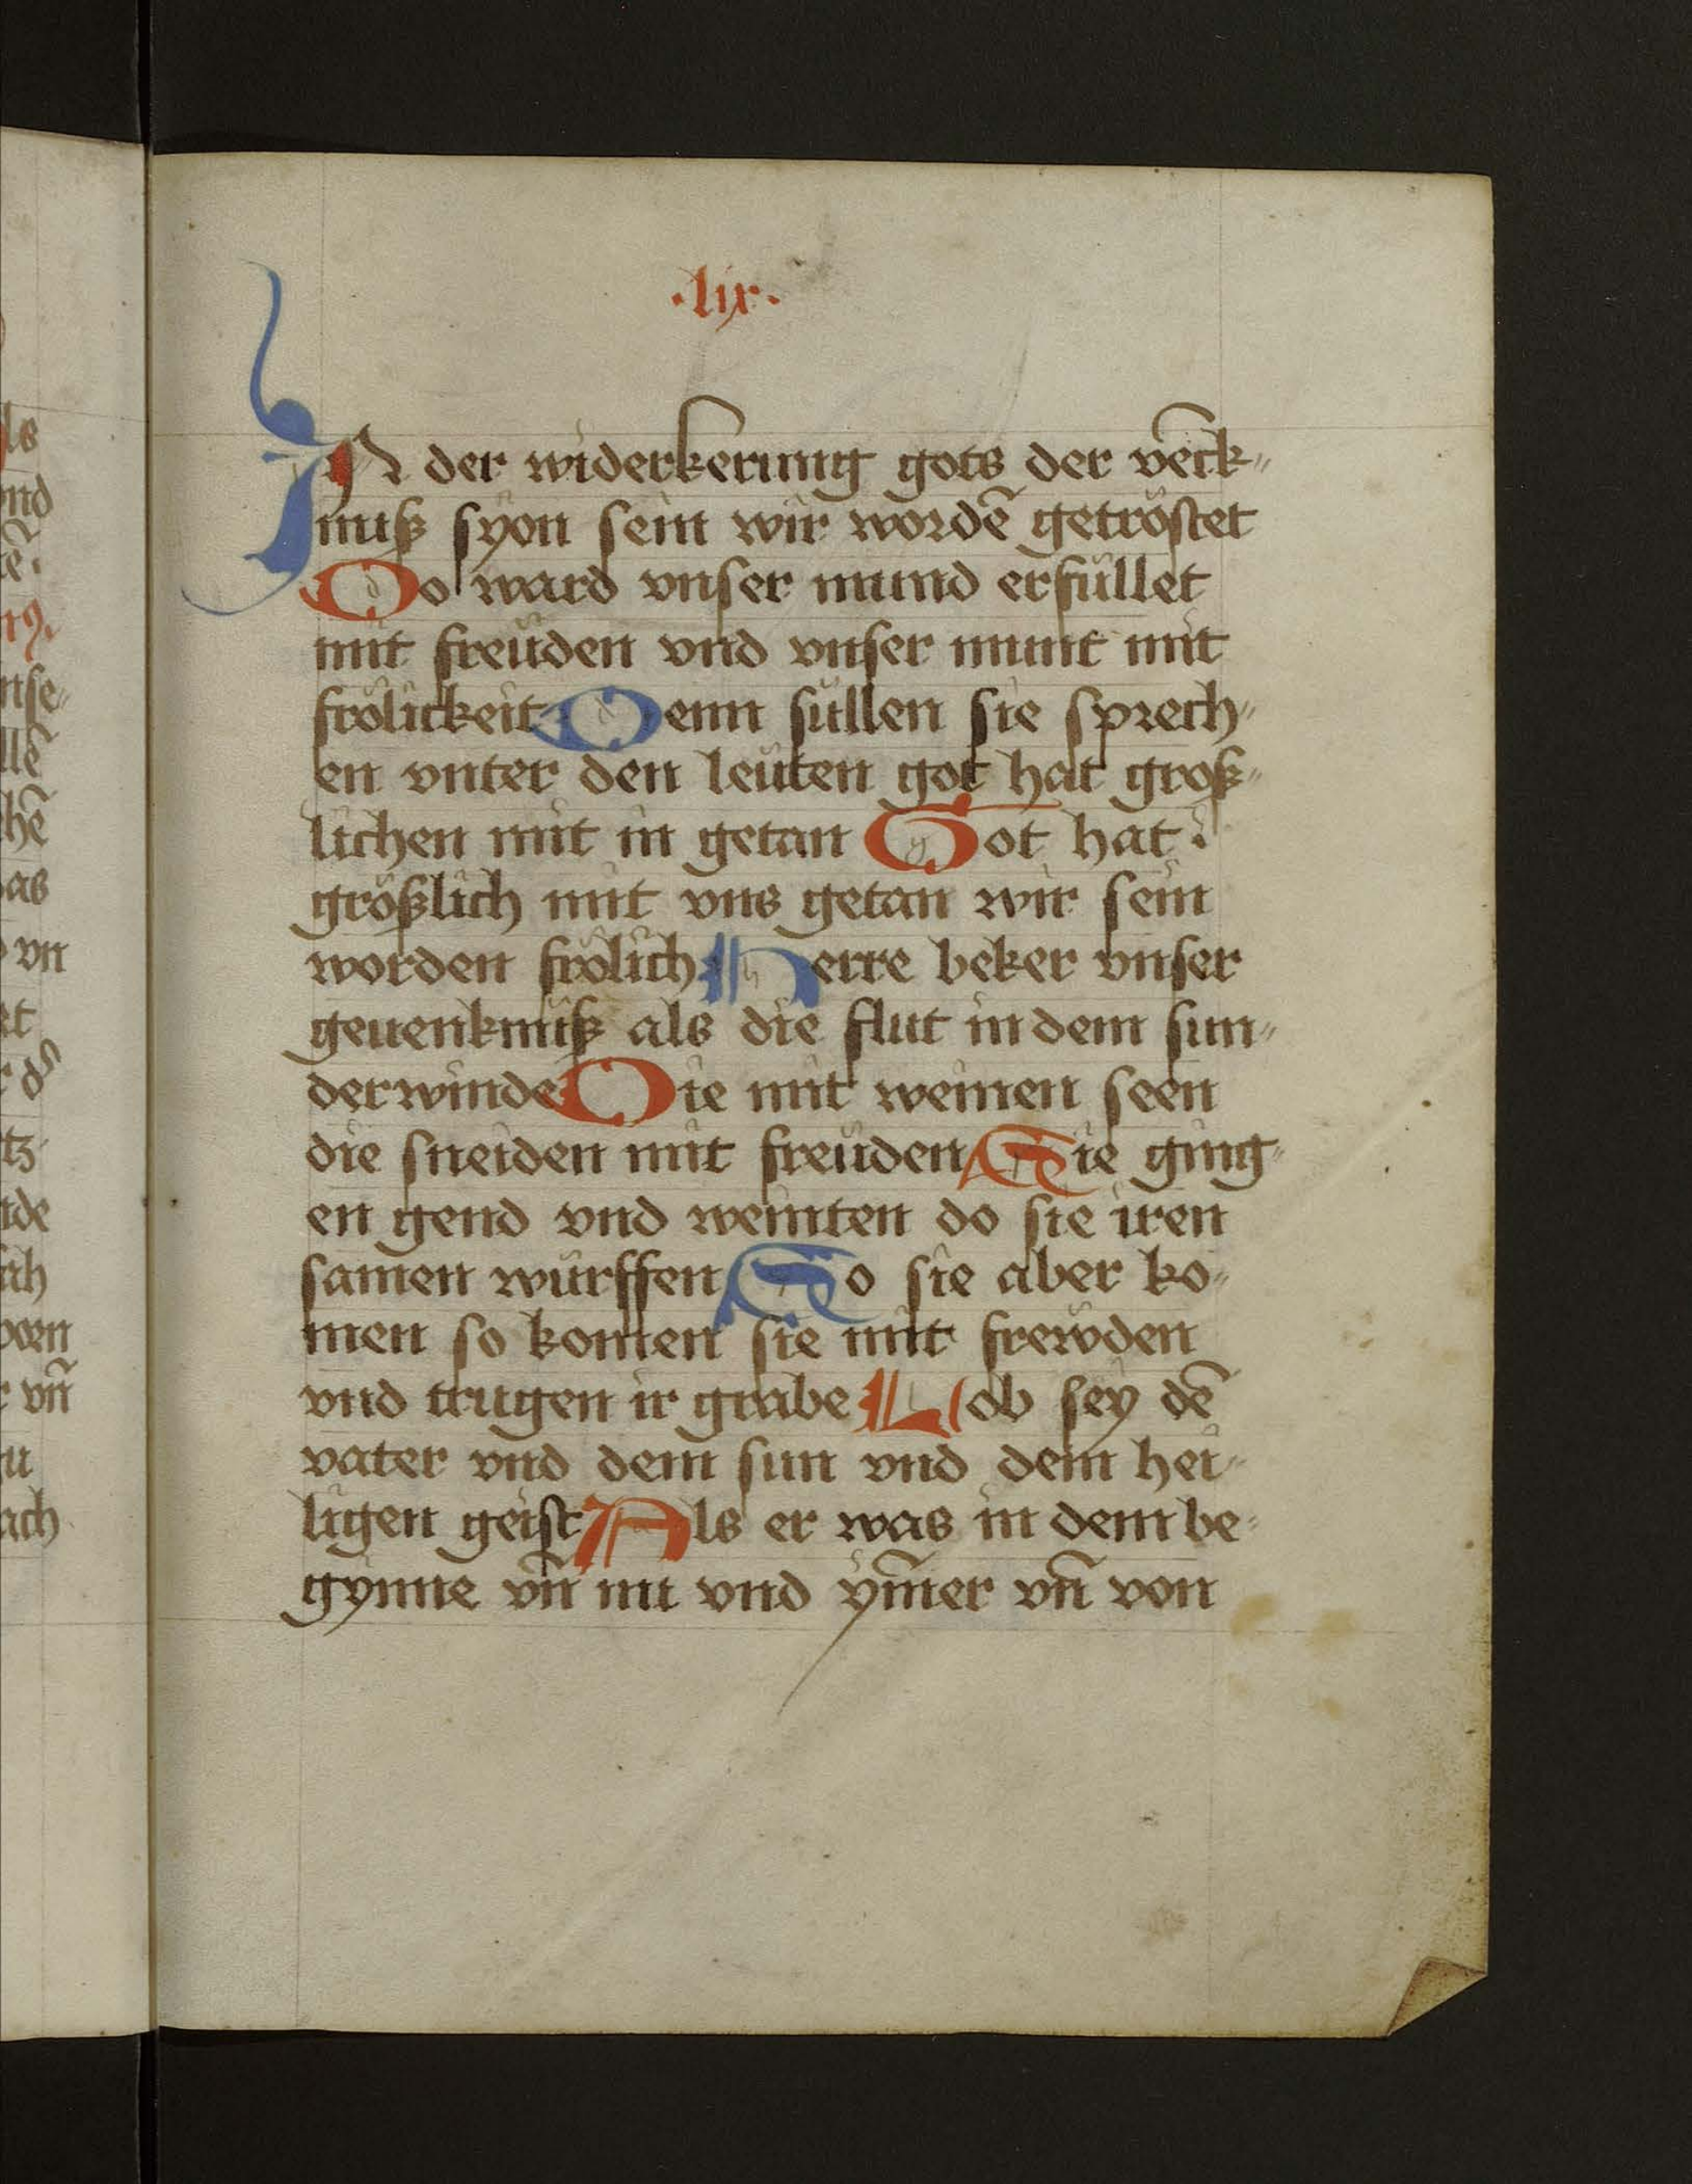 .lix.
IN der widerkerung gots der vēck⸗
nuß syon sein wir wordē getröstet
Do ward vnser mund erfüllet
mit freüden vnd vnser munt mit
frölickeit Denn süllen sie sprech⸗
en vnter den leüten got hat groß⸗
lichen mit in getan Got hat
größlich mit vns getan wir sein
worden frölich Herre beker vnser
geuenknuß als die flut in dem sun⸗
derwinde Die mit weinen seen
die sneiden mit freüden Sie ging⸗
en gend vnd weinten do sie iren
samen würffen So sie aber ko⸗
men so komen sie mit frewden
vnd trugen ir grabe Lob sey dē
vater vnd dem sun vnd dem hei⸗
ligen geist Als er was in dem be⸗
gynne vn̄ nu vnd ym̄er vn̄ von